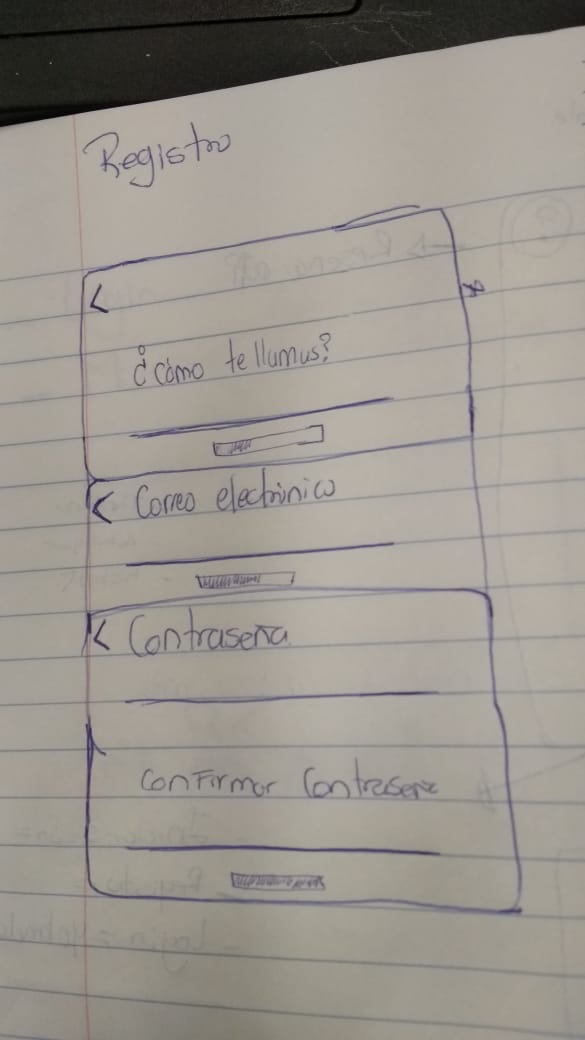 Registro
<
¿cómo te llamas?
< Correo electrónico
< Contraseña
Confirmar Contraseña